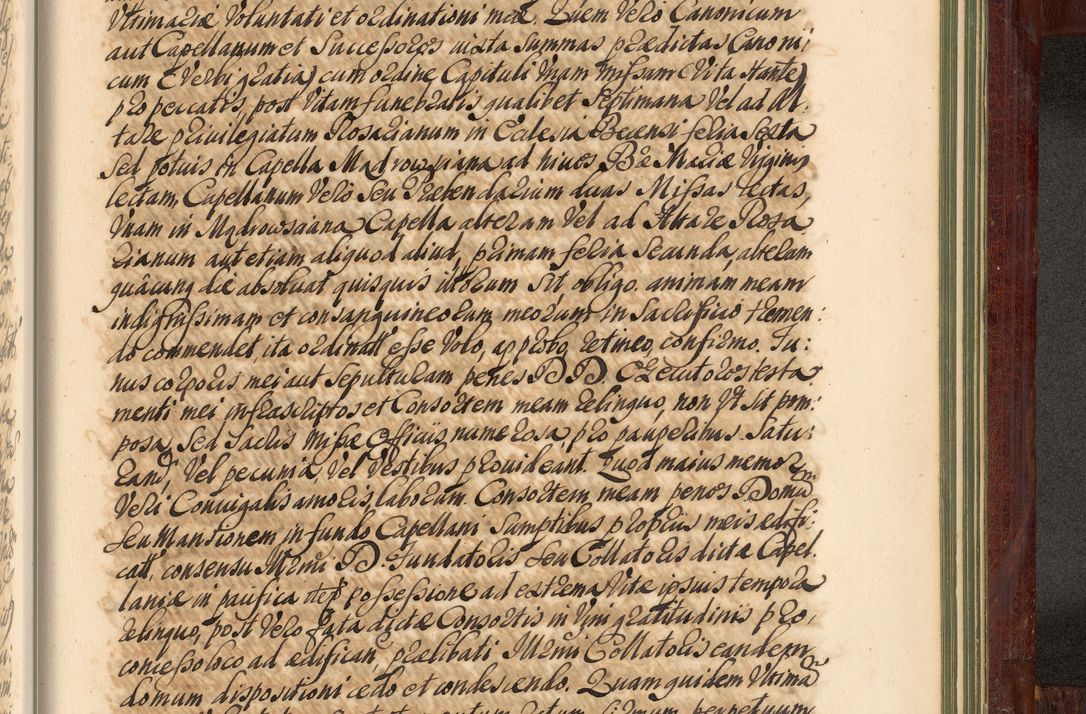 Vltimariæ Voluntati et ordinationi meæ. Quem Vero Canonicum
aut Capellanum et Successores iuxta Summas prædictas Canoni;
cum (Verbi gratia) cum ordine Capituli Vnam missam (Vita stante)
pro peccatis, post Vitam funebralis, qualibet Septimana Vel ad Al.
tare privilegiatum Rosarianum in Ecclesia Becensi feria Sexta
Sed potius in Capella Madrowsciana ad nives Btæ Mariæ Virginis
lectam, Capellanum Vero Seu Præbendarium duas Missas lectas,
Vnam in Madrowsciana Capella alteram Vel ad Altare Rosa
rianum aut etiam aliquod aliud, primam feria Secunda, alteram
quâcunq die absoluat quisquis illorum Sit obligo. animam meam
indignissimam et consanguineorum meorum in Sacrificio tremen:
do commendet, ita ordinatt esse Volo, approbo, retineo, confirmo. Fu:
nus corporis mei aut Sepulturam penes DD. Executores testa
menti mei infrascriptos et Consortem meam relinquo, non Vt Sit pom:
posa, Sed Sacris missæ Officiis numerosa, pro pauperibus Satu:
rand, Vel pecunia, Vel Vestibus provideant. Quod maius memor
Veri Coniugalis amoris, laborum. Consortem meam penes Domum
Seu Mansionem in fundo Capellani Sumptibus propriis meis ædifi:
catt, consensu Illmi D. Fundatoris Seu Collatoris dictæ Capel.
laniæ in pacifica possessione ad extrema Vitæ ipsius tempora
relinquo, post Vero fata dictæ Consortis in Vim gratitudinis pro,
concesso loco ad ædifican, prælibati Illmi Collatoris eandem
domum dispositioni cedo et condescendo. Quam quidem Vltimam